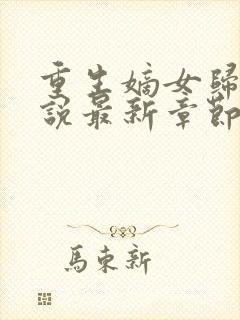 重生嫡女歸
說最新章節
馬東新